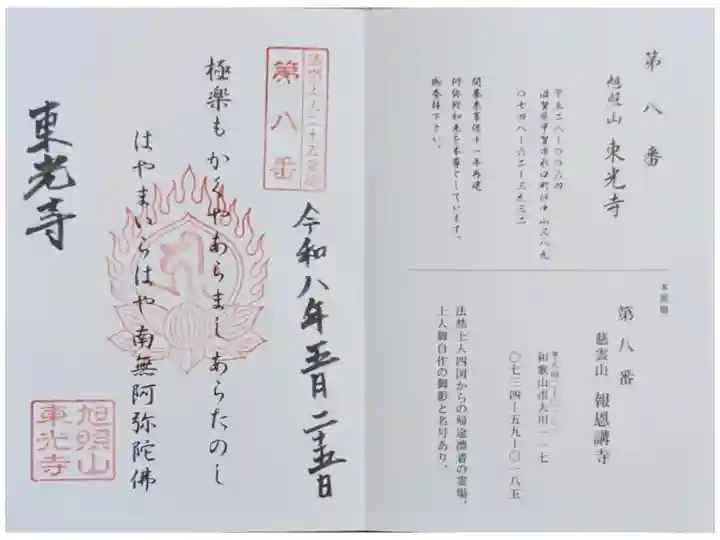 第八番
旭照山 東光寺
滋賀県甲賀市水口町北内貴三八九
開基来貴信十一年再建
阿弥陀如来を本尊としています。
御参拝下さい。
本霊場
第八番
慈雲山 報恩講寺
和歌山市大川一一七
〇七三四-五九-〇一八五
法然上人四国からの帰途漂着の霊場。
上人御自作の御影と名号あり。
第八番
令和八年五月二十五日
極楽もかくやあらましあらたのし
はやまいらはや南無阿弥陀佛
東光寺
旭照山
東光寺